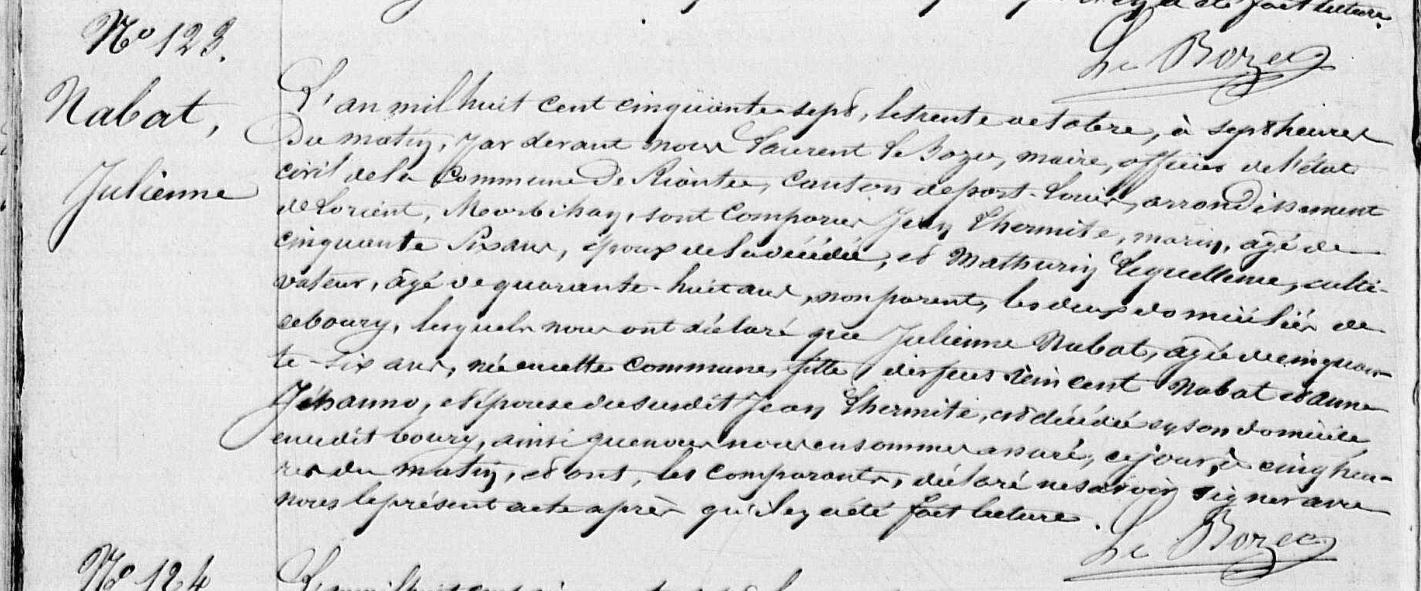 qu'il y a été fait lecture.
Le Bozec
No 123.
Nabat,
Julienne
L'an mil huit cent cinquante sept, le trente octobre, à sept heures
du matin, par devant nous Laurent Le Bozec, maire, officier de l'état
civil de la Commune de Riantec, Canton de port-Louis, arrondissement
de Lorient, Morbihan, sont comparus Jean Lhermite, marin, âgé de
cinquante six ans, époux de la décédée, et Mathurin Lequellenec, culti-
vateur, âgé de quarante-huit ans, non parent, les deux domiciliés de
ce bourg, lesquels nous ont déclaré que Julienne Nabat, âgée de cinquan-
te-six ans, née en cette commune, fille des feus Vincent Nabat et anne
Jéhanno, et épouse du susdit Jean Lhermite, est décédée en son domicile
en cedit bourg, ainsi que nous nous en sommes assuré, ce jour, à cinq heu-
res du matin, et ont, les comparants, déclaré ne savoir signer avec
nous le présent acte après qu'il y a été fait lecture.
Le Bozec
No 124
L'an mil huit cent cinquante sept